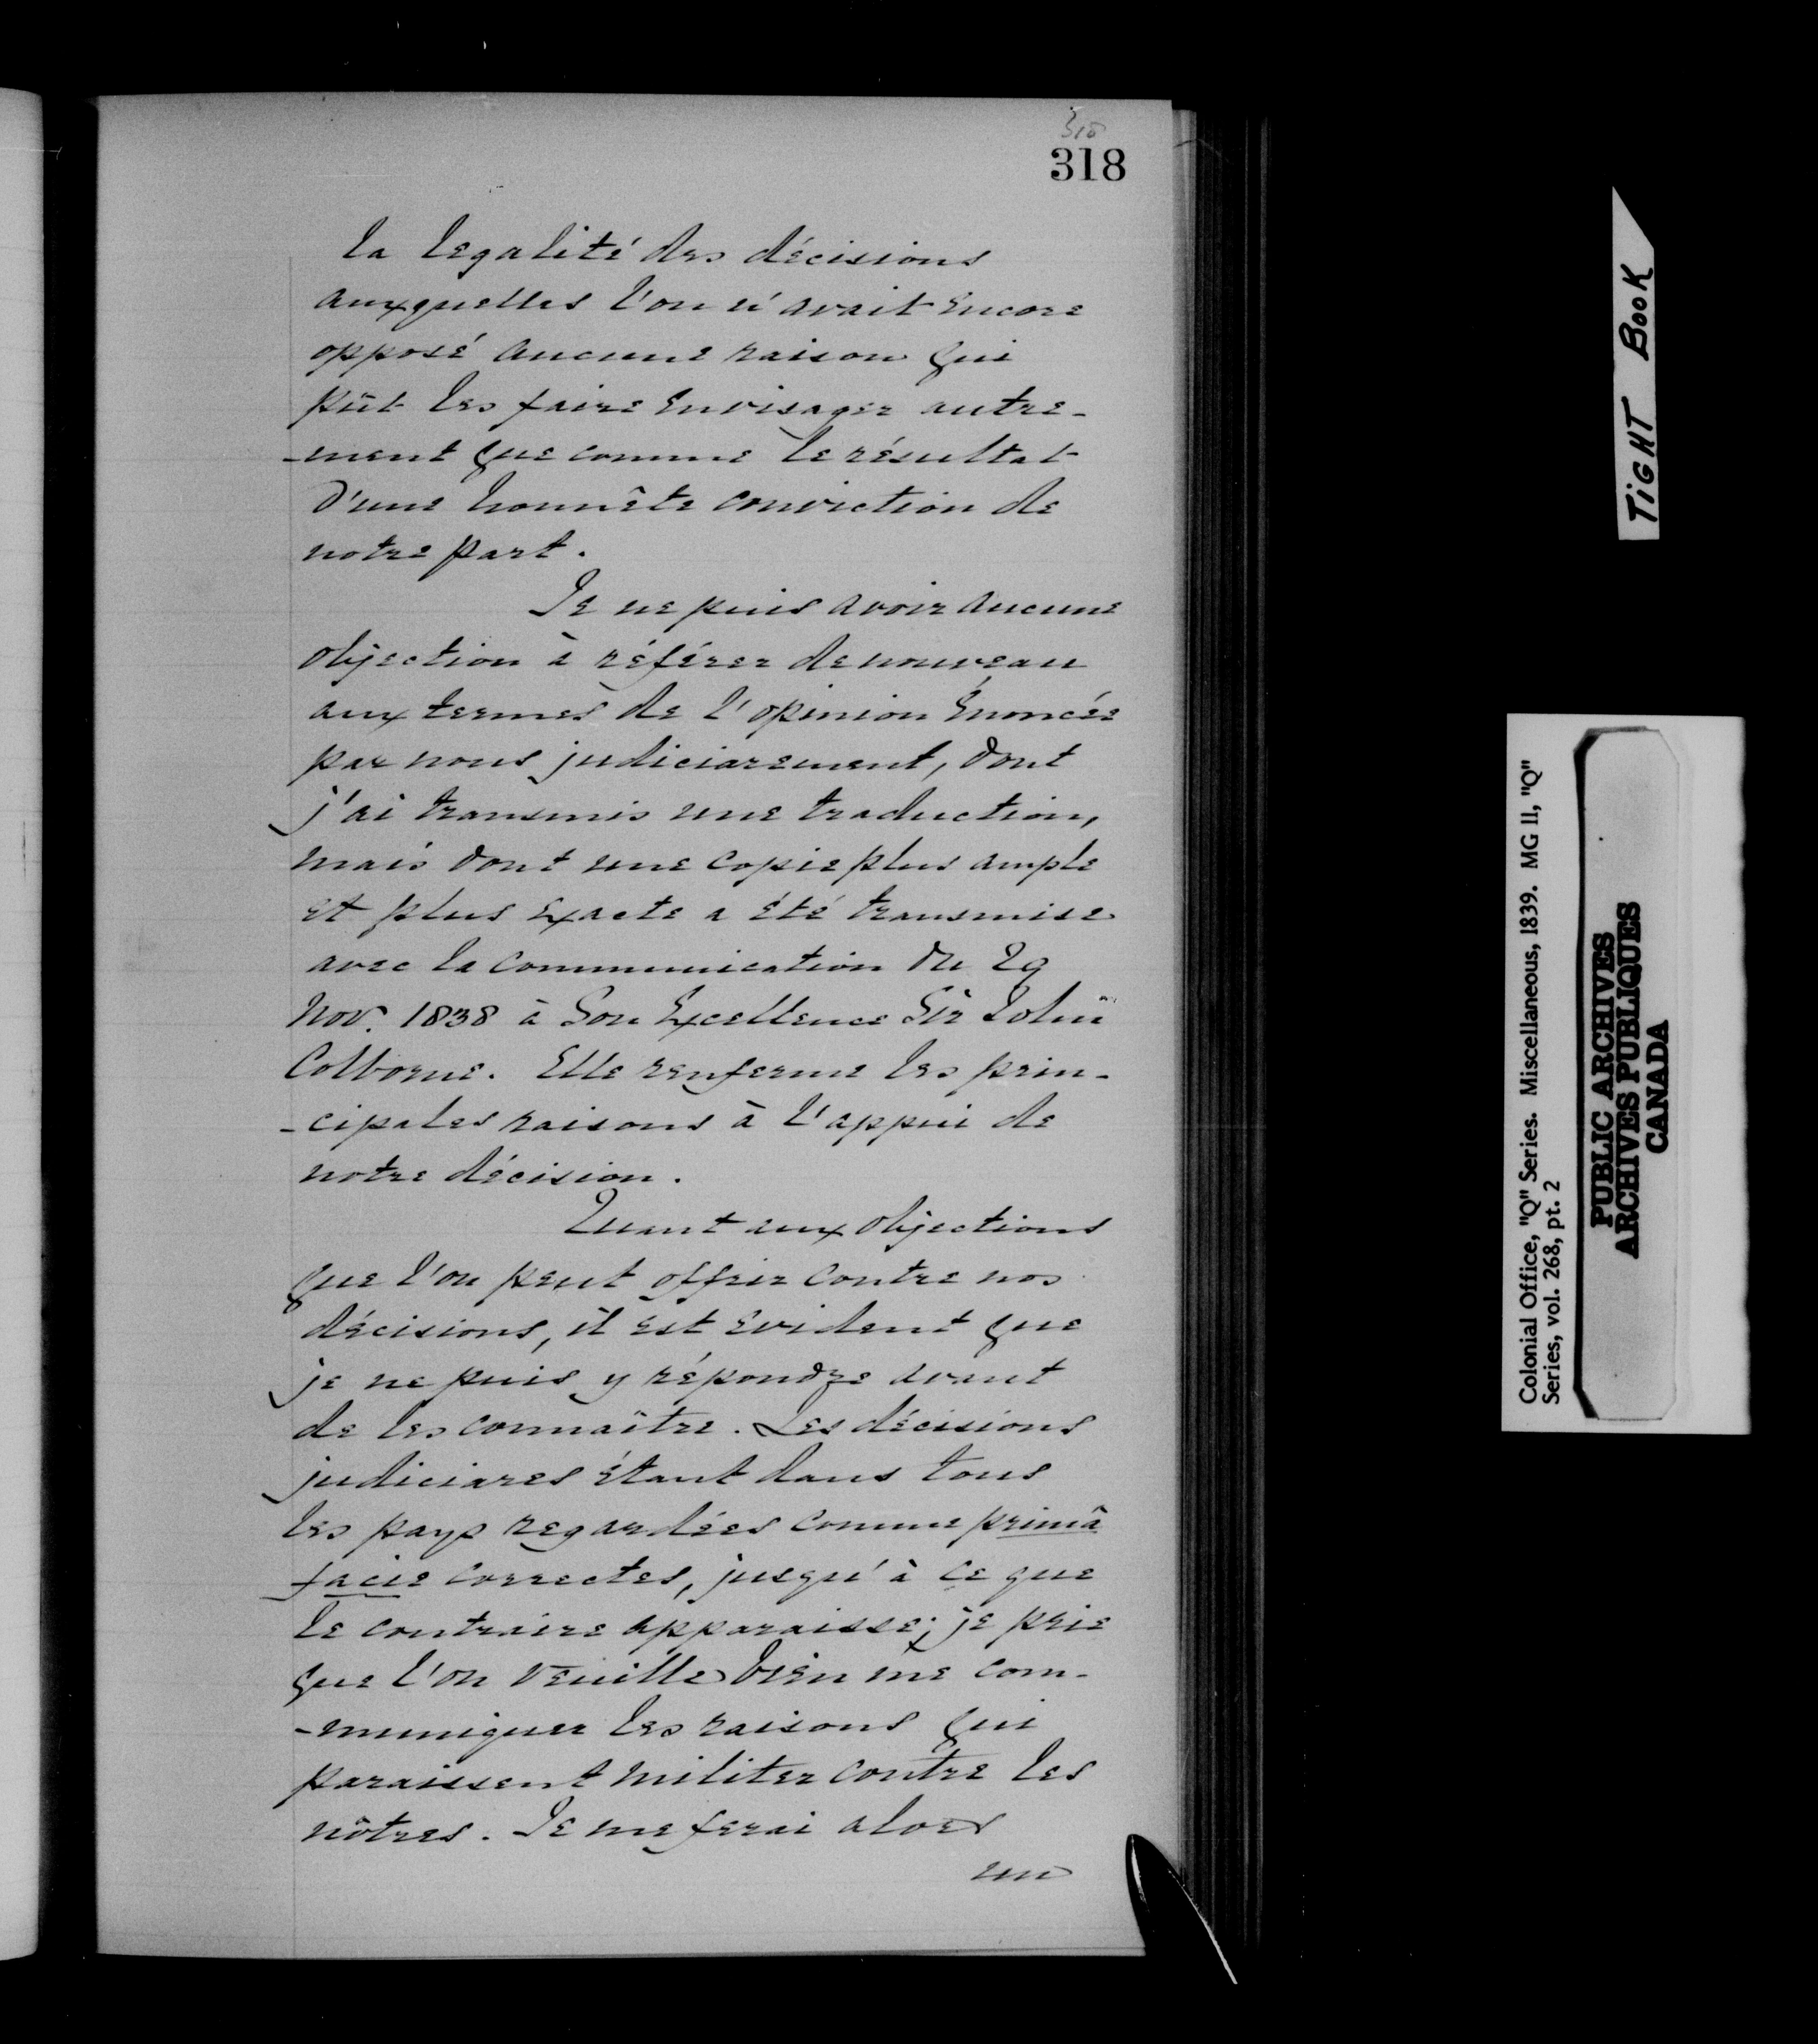 318
la legalité des décisions
auxquelles l'on n'avait encore
opposé aucune raison qui
pût les faire envisager autre-
-ment que comme le résultat
d'une honnête conviction de
notre part.
Je ne puis avoir aucune
objection à référer de nouveau
aux termes de l'opinion énoncée
par nous judiciarement, dont
j'ai transmis une traduction,
mais dont une copie plus ample
et plus exacte a été transmise
avec la communication du 29
Nov. 1838 à Son Excellence Sir John
Colborne. Elle renferme les prin-
-cipales raisons à l'appui de
notre décision.
Quant aux objections
que l'on peut offrir contre nos
décisions, il est evident que
je ne puis y répondre avant
de les connaître. Les décisions
judiciares étant dans tous
les pays regardées comme primâ
facie correctes, jusqu'à ce que
le contraire apparaisse; je prie
que l'on veuille bien me com-
-muniquer les raisons qui
paraissent militer contre les
nôtres. Je me ferai alors
un
TIGHT BOOK
Colonial Office, "Q" Series. Miscellaneous, 1839. MG 11, "Q"
Series, vol. 268, pt. 2
PUBLIC ARCHIVES
ARCHIVES PUBLIQUES
CANADA